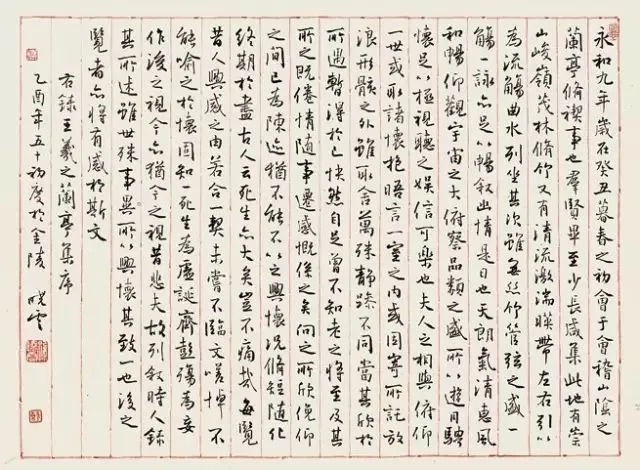 永和九年歲在癸丑暮春之初會于會稽山陰之
蘭亭脩禊事也羣賢畢至少長咸集此地有崇
山峻嶺茂林脩竹又有清流激湍暎帶左右引以
為流觴曲水列坐其次雖無絲竹管弦之盛一
觴一詠亦足以暢叙幽情是日也天朗氣清惠風
和暢仰觀宇宙之大俯察品類之盛所以遊目騁
懷足以極視聽之娛信可樂也夫人之相與俯仰
一世或取諸懷抱晤言一室之内或因寄所託放
浪形骸之外雖取舍萬殊静躁不同當其欣於
所遇暫得於己快然自足曾不知老之將至及其
所之既倦情隨事遷感慨係之矣向之所欣俛仰
之間已為陳迹猶不能不以之興懷況脩短隨化
終期於盡古人云死生亦大矣豈不痛哉每覽
昔人興感之由若合一契未嘗不臨文嗟悼不
能喻之於懷固知一死生為虛誕齊彭殤為妄
作後之視今亦猶今之視昔悲夫故列叙時人錄
其所述雖世殊事異所以興懷其致一也後之
覽者亦將有感於斯文
右録王羲之蘭亭集序
乙酉年五十初度於金陵 曉雲